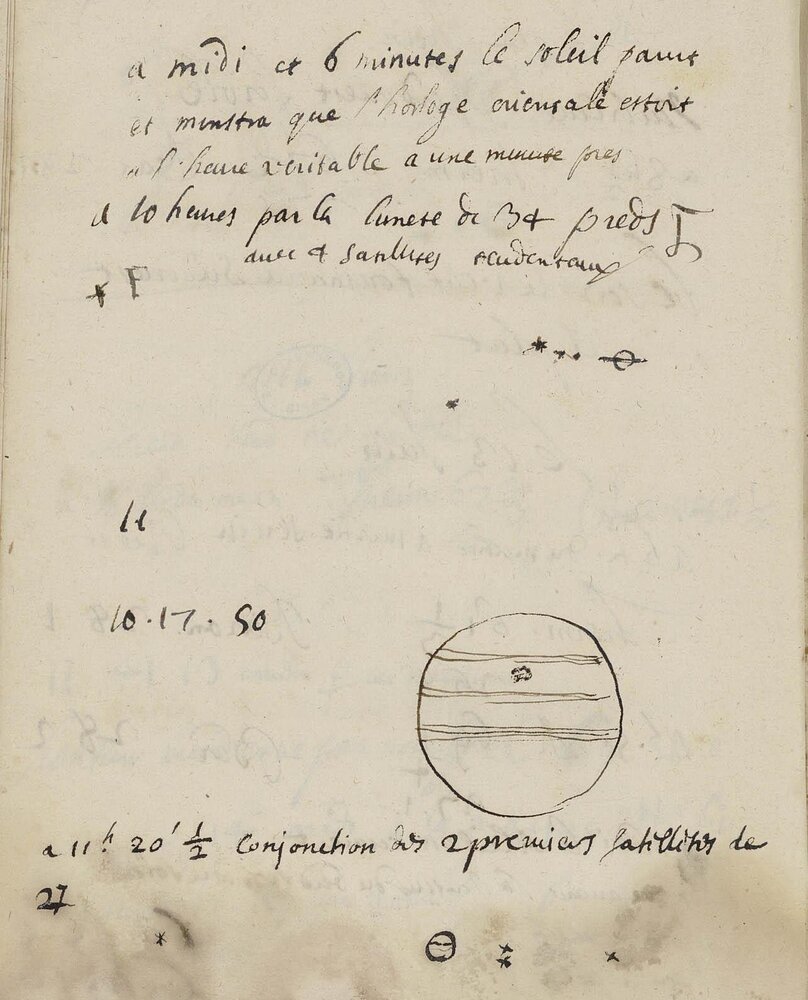 a midi et 6 minutes le soleil parut
et monstra que l'horloge orientale estoit
a l'heure veritable a une minute pres
a 10 heures par la lunete de 34 pieds
avec 4 satellites
11
10 · 17 · 50
a 11h 20' 1/2 Conjonction des 2 premiers satellites de
♃